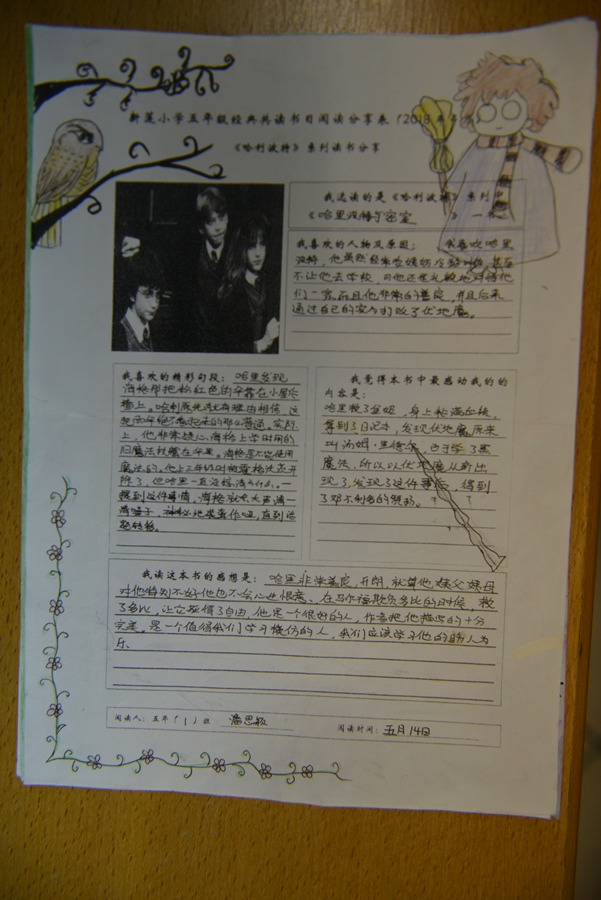 新莲小学五年级经典共读书目阅读分享表（2018年5月）
《哈利波特》系列读书分享
我选读的是《哈利波特》系列中
《哈里波特与密室》一书
我喜欢的人物及原因： 我喜欢哈里
波特，他虽然经常受姨妈
不让他去学校，可他还是
们一家而且他非常的善良，并且后来
通过自己的实力打败了伏地魔。
我喜欢的精彩句段： 哈里发现
海格那把粉红色的伞靠在小屋
墙上。哈利原先就有理由相信，这
把
上，他非常疑心，海格上学时用的
旧魔法杖藏在伞里。海格是不能使用
魔法的。他上三年级时被霍格沃茨开
除了，但哈里一直没搞清为什么。一
提到这件事情，海格就会大声清一
清嗓子，神秘地装聋作哑，直到话
题转移。
我觉得本书中最感动我的的
内容是：
哈里救了金妮，身上粘满血块，
拿到了日记本，发现伏地魔原来
叫汤姆·里德尔，由于学了黑
魔法，所以以伏地魔从新出
现了，发现了这件事后，得到
了邓不利多的帮助。
我读这本书的感想是： 哈里非常善良，开朗，就算他姨父姨母
对他特别不好他也不会心生恨意、在马尔福欺负多比的时候，救
了多比，让它获得了自由，他是一个很好的人，作者把他描写的十分
完美。是一个值得我们学习模仿的人，我们应该学习他的助人为
乐。
阅读人：五年（1）班 潘思颖
阅读时间：五月14日